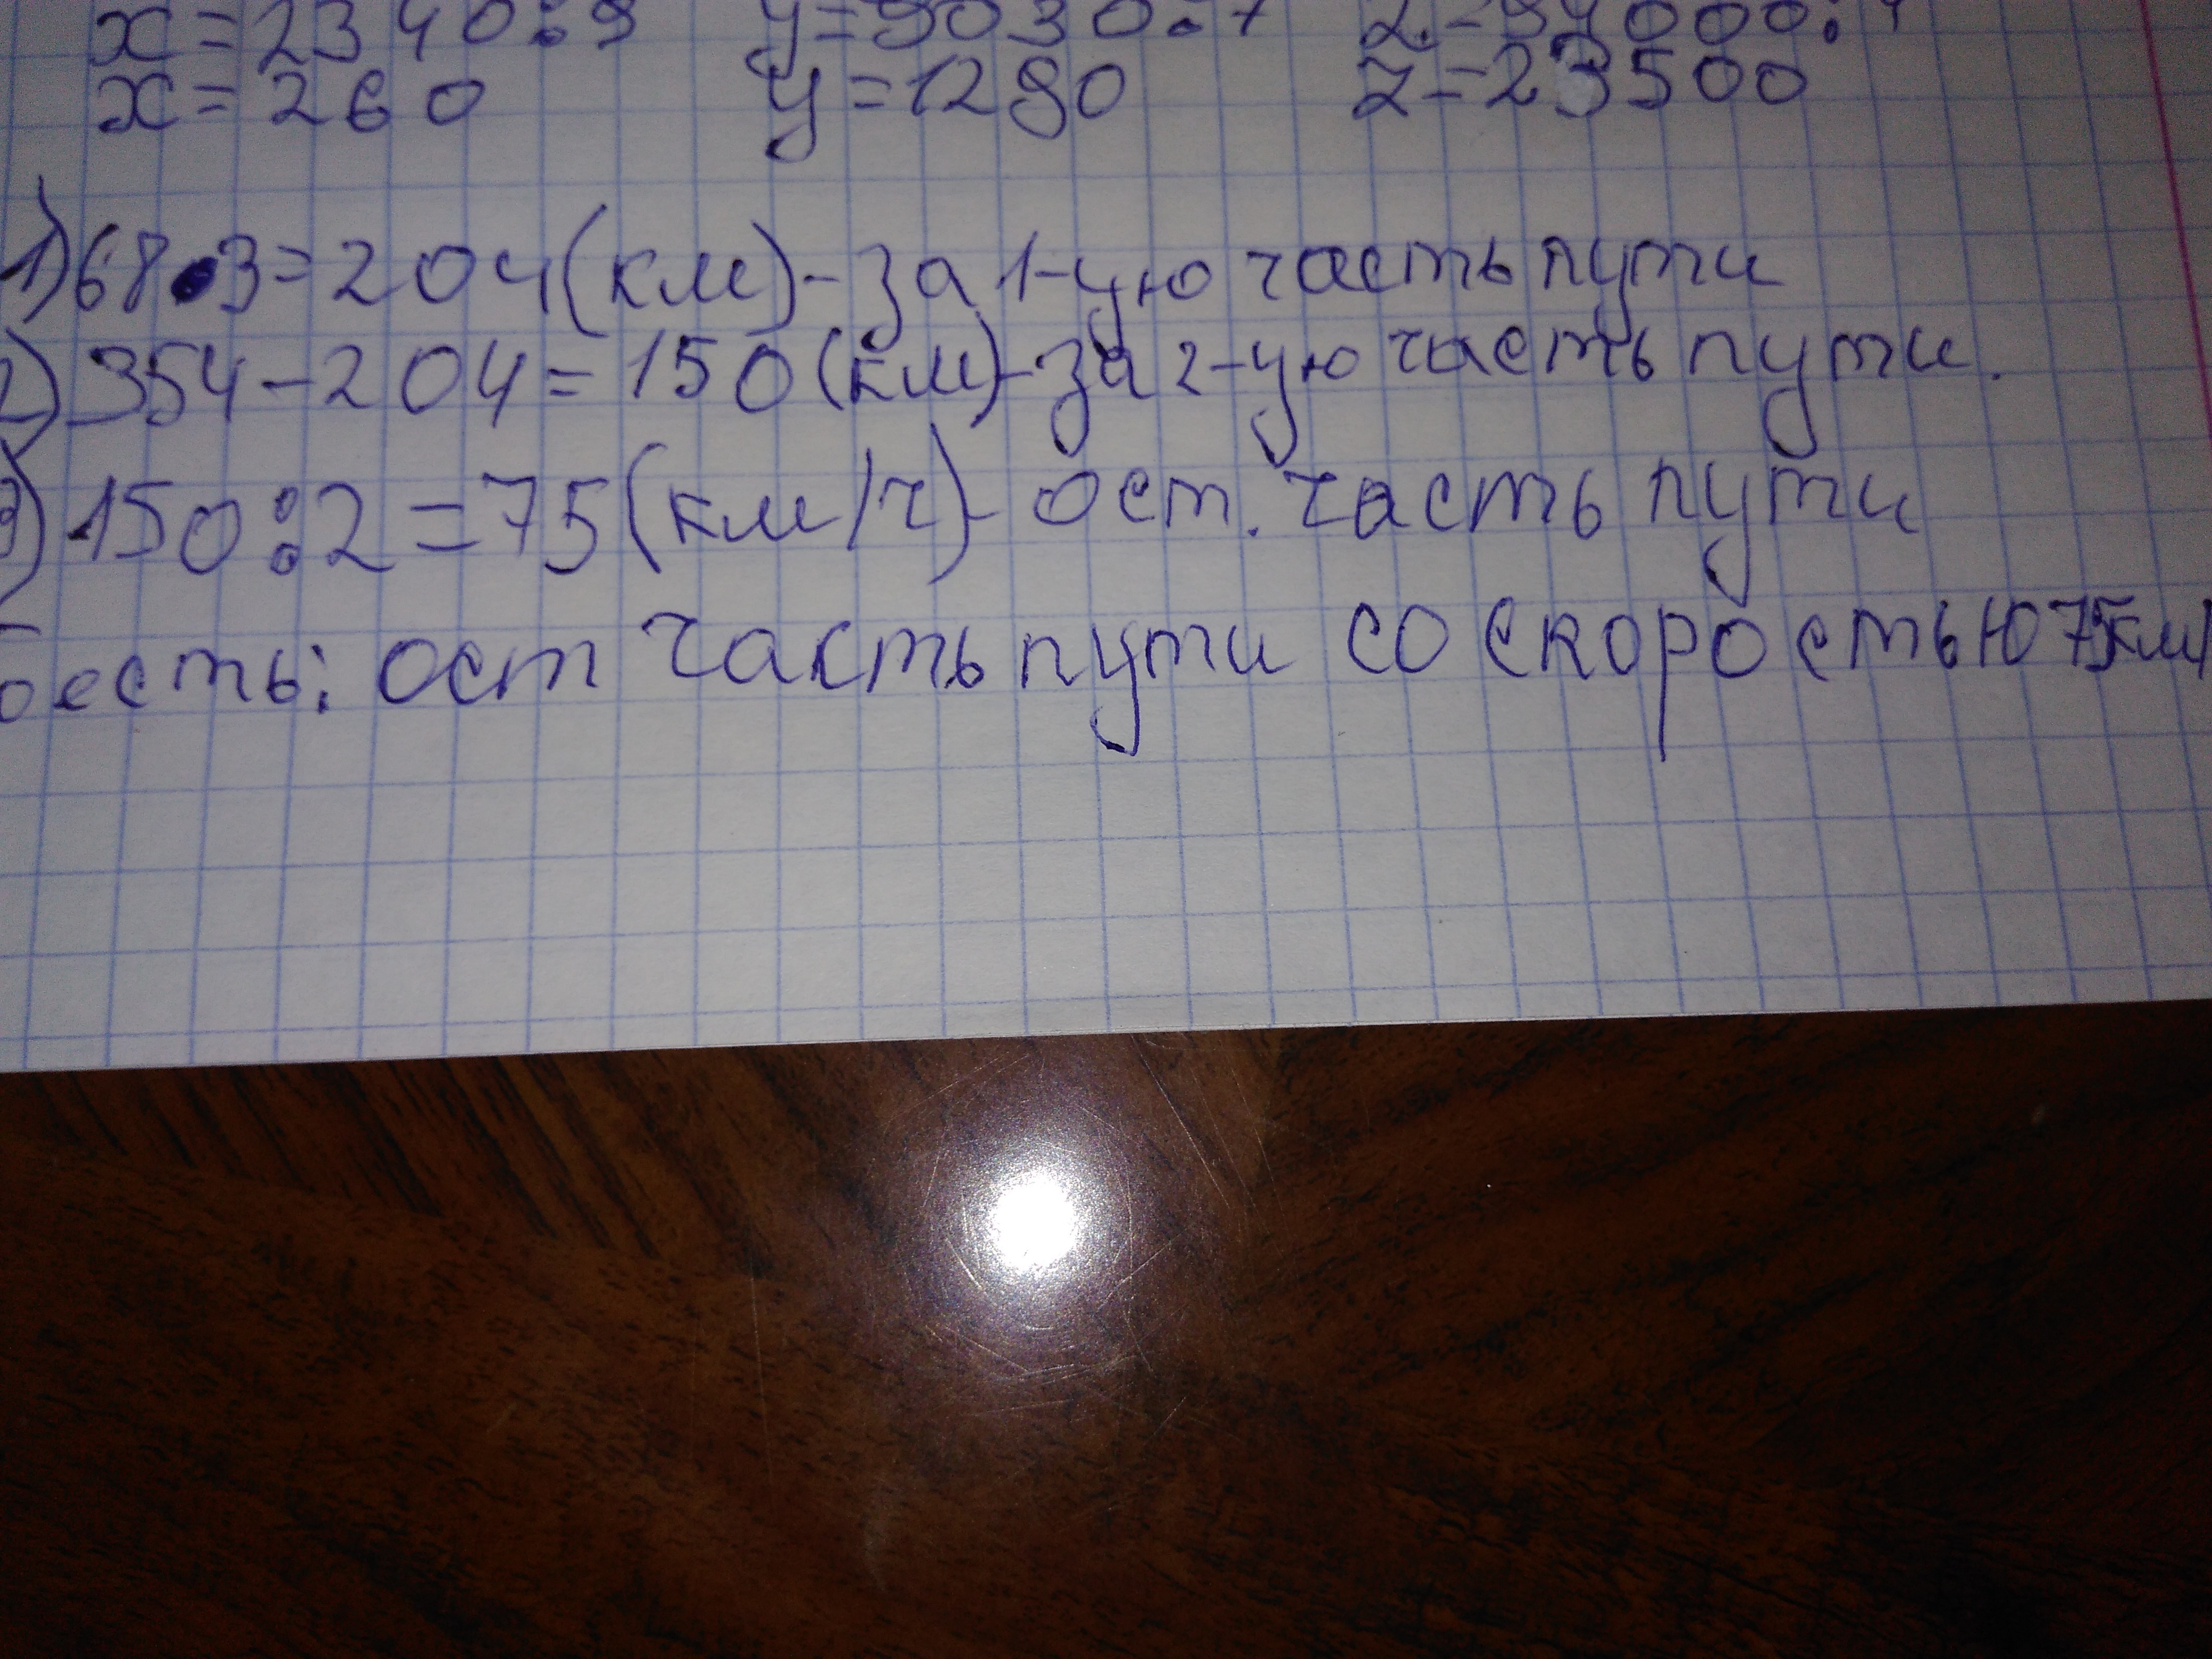 x=2340:9 y=9030:7 z=94000:4
x=260 y=1290 z=23500
1)68•3=204(км)-за 1-ую часть пути
2)354-204=150(км)-за 2-ую часть пути.
3)150:2=75(км/ч)-ост. часть пути
ост часть пути со скоростью 75км/